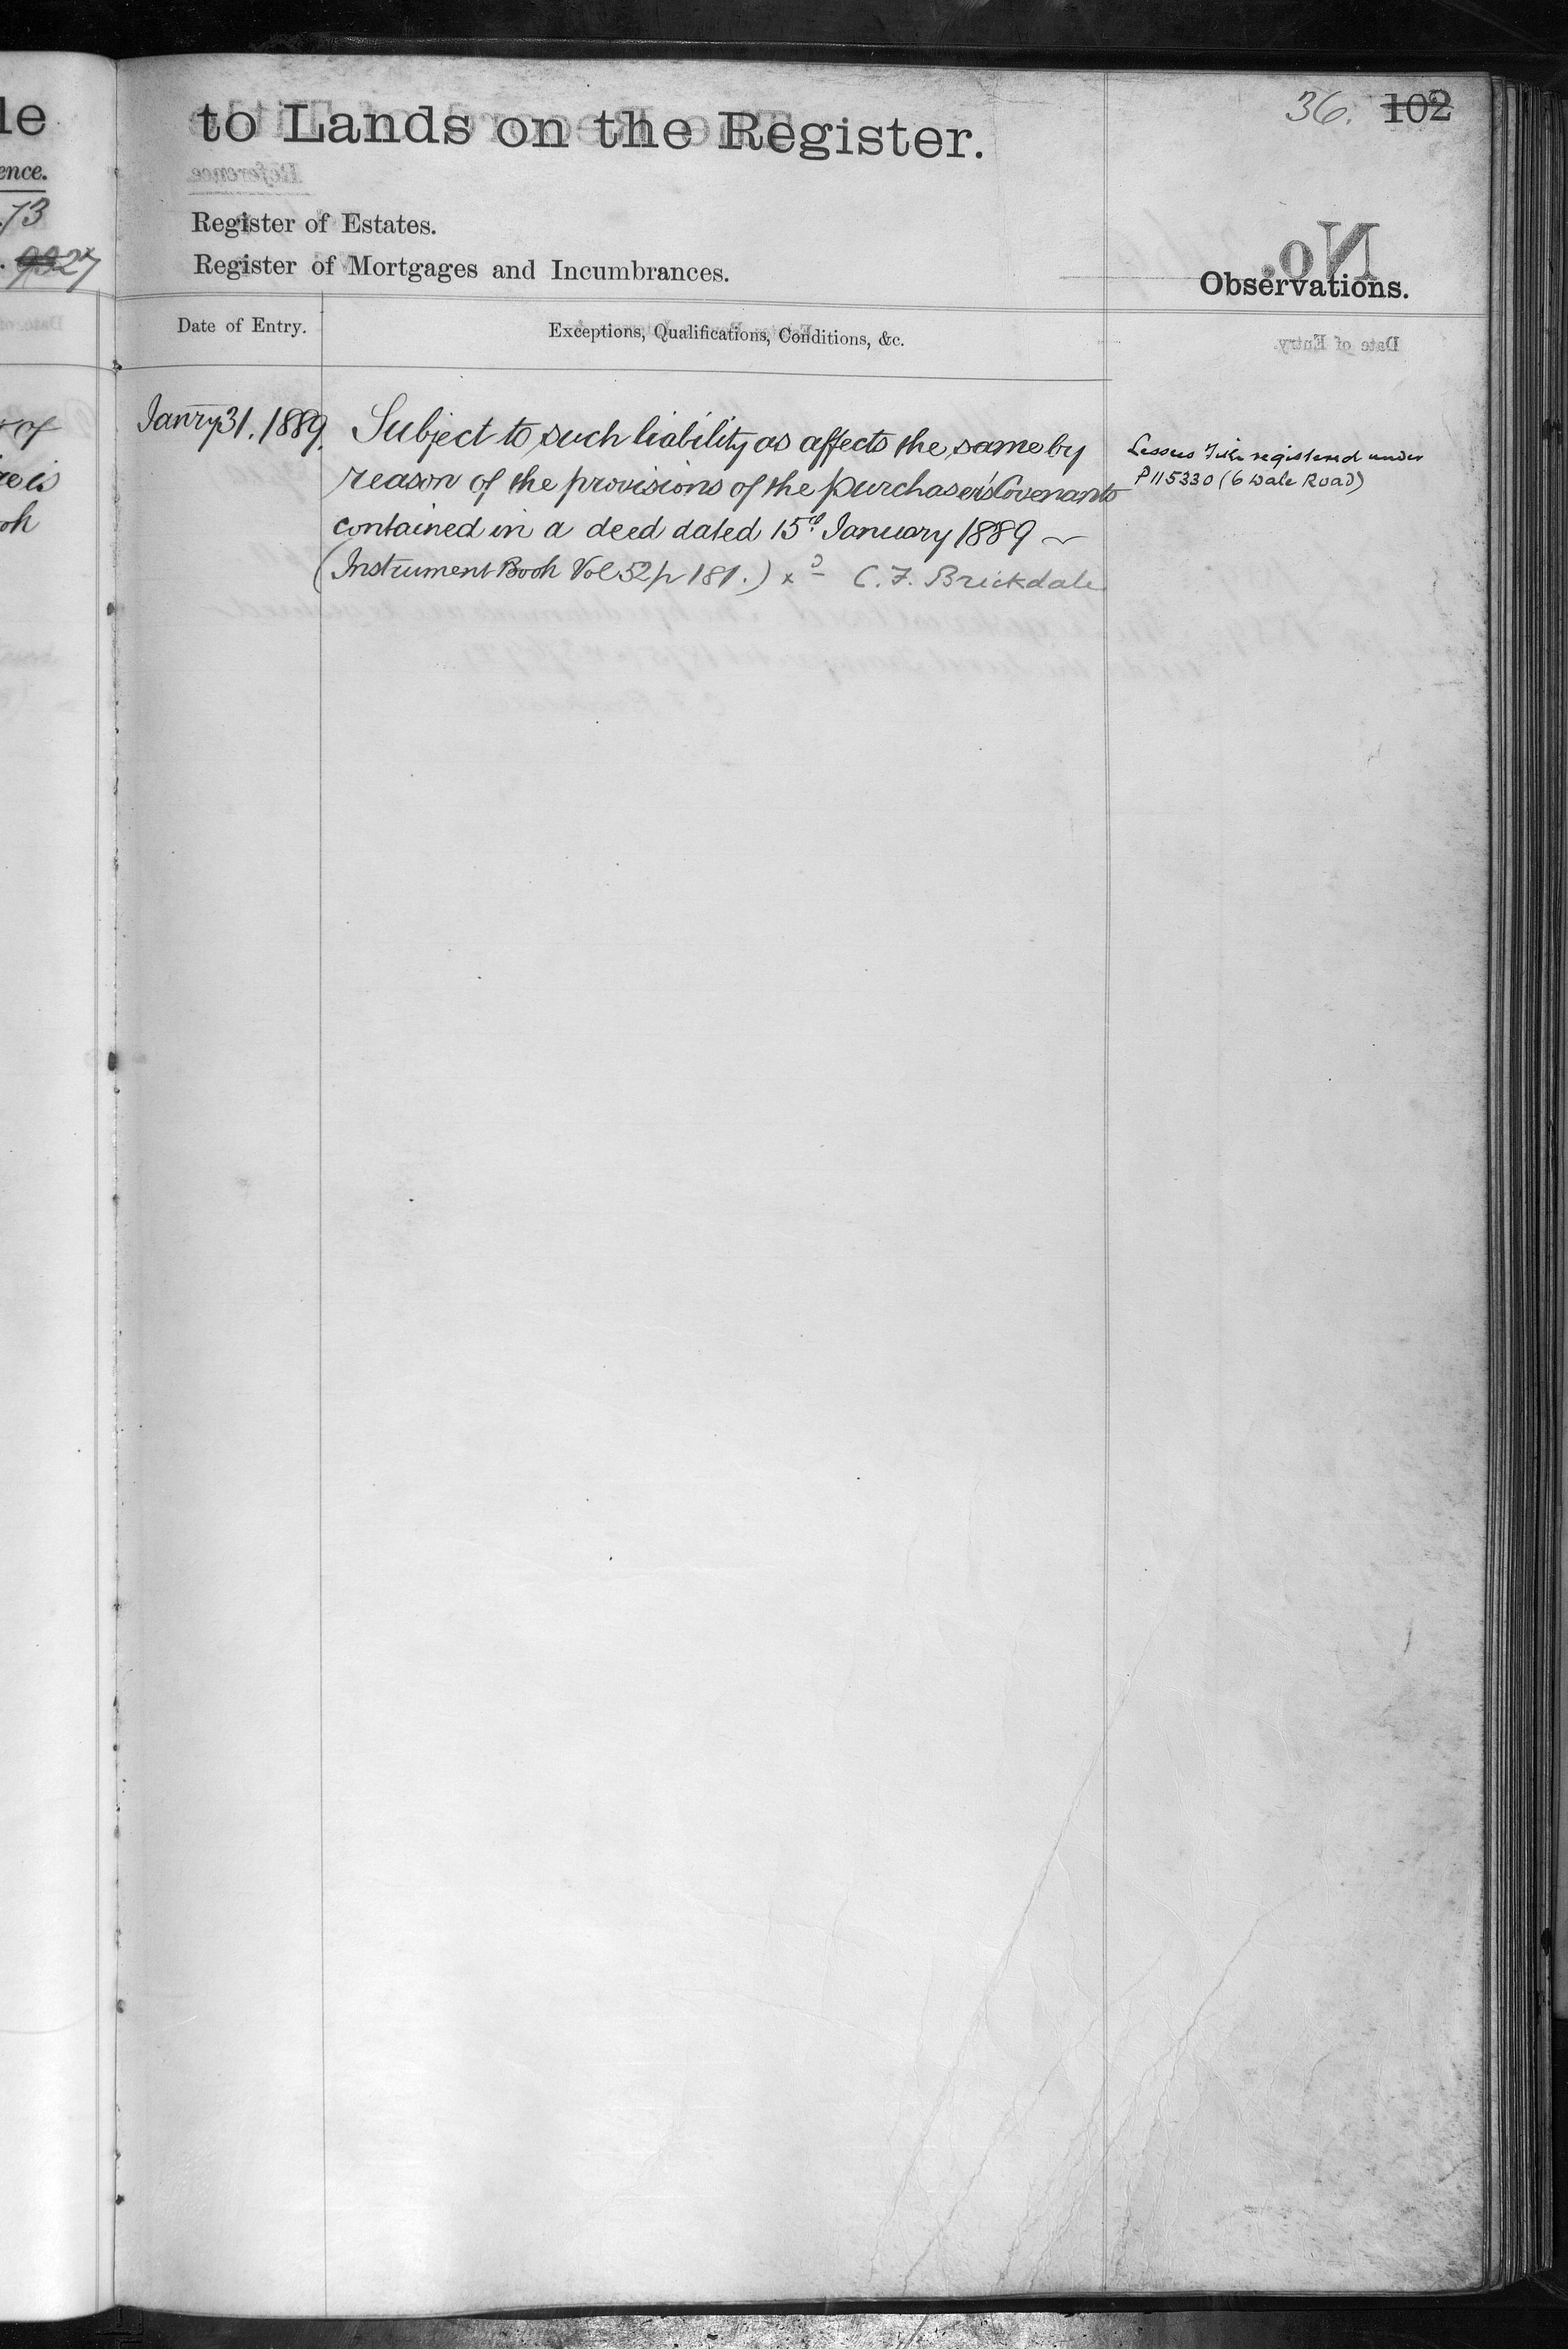 le
ence.
73
9327
of
36. 102
to Lands on the Register.
Register of Estates.
Register of Mortgages and Incumbrances.
Observations.
Date of Entry.
Exceptions, Qualifications, Conditions, &c.
Janry 31. 1889.
Subject to such liability as affects the same by
reason of the provisions of the purchaser's Covenants
contained in a deed dated 15th January 1889
(Instrument Book Vol 52 p 181.) x C. F. Brickdale
Lessees Title registered under
P115330 (6 Dale Road)
No.
Reference.
Date of Entry.